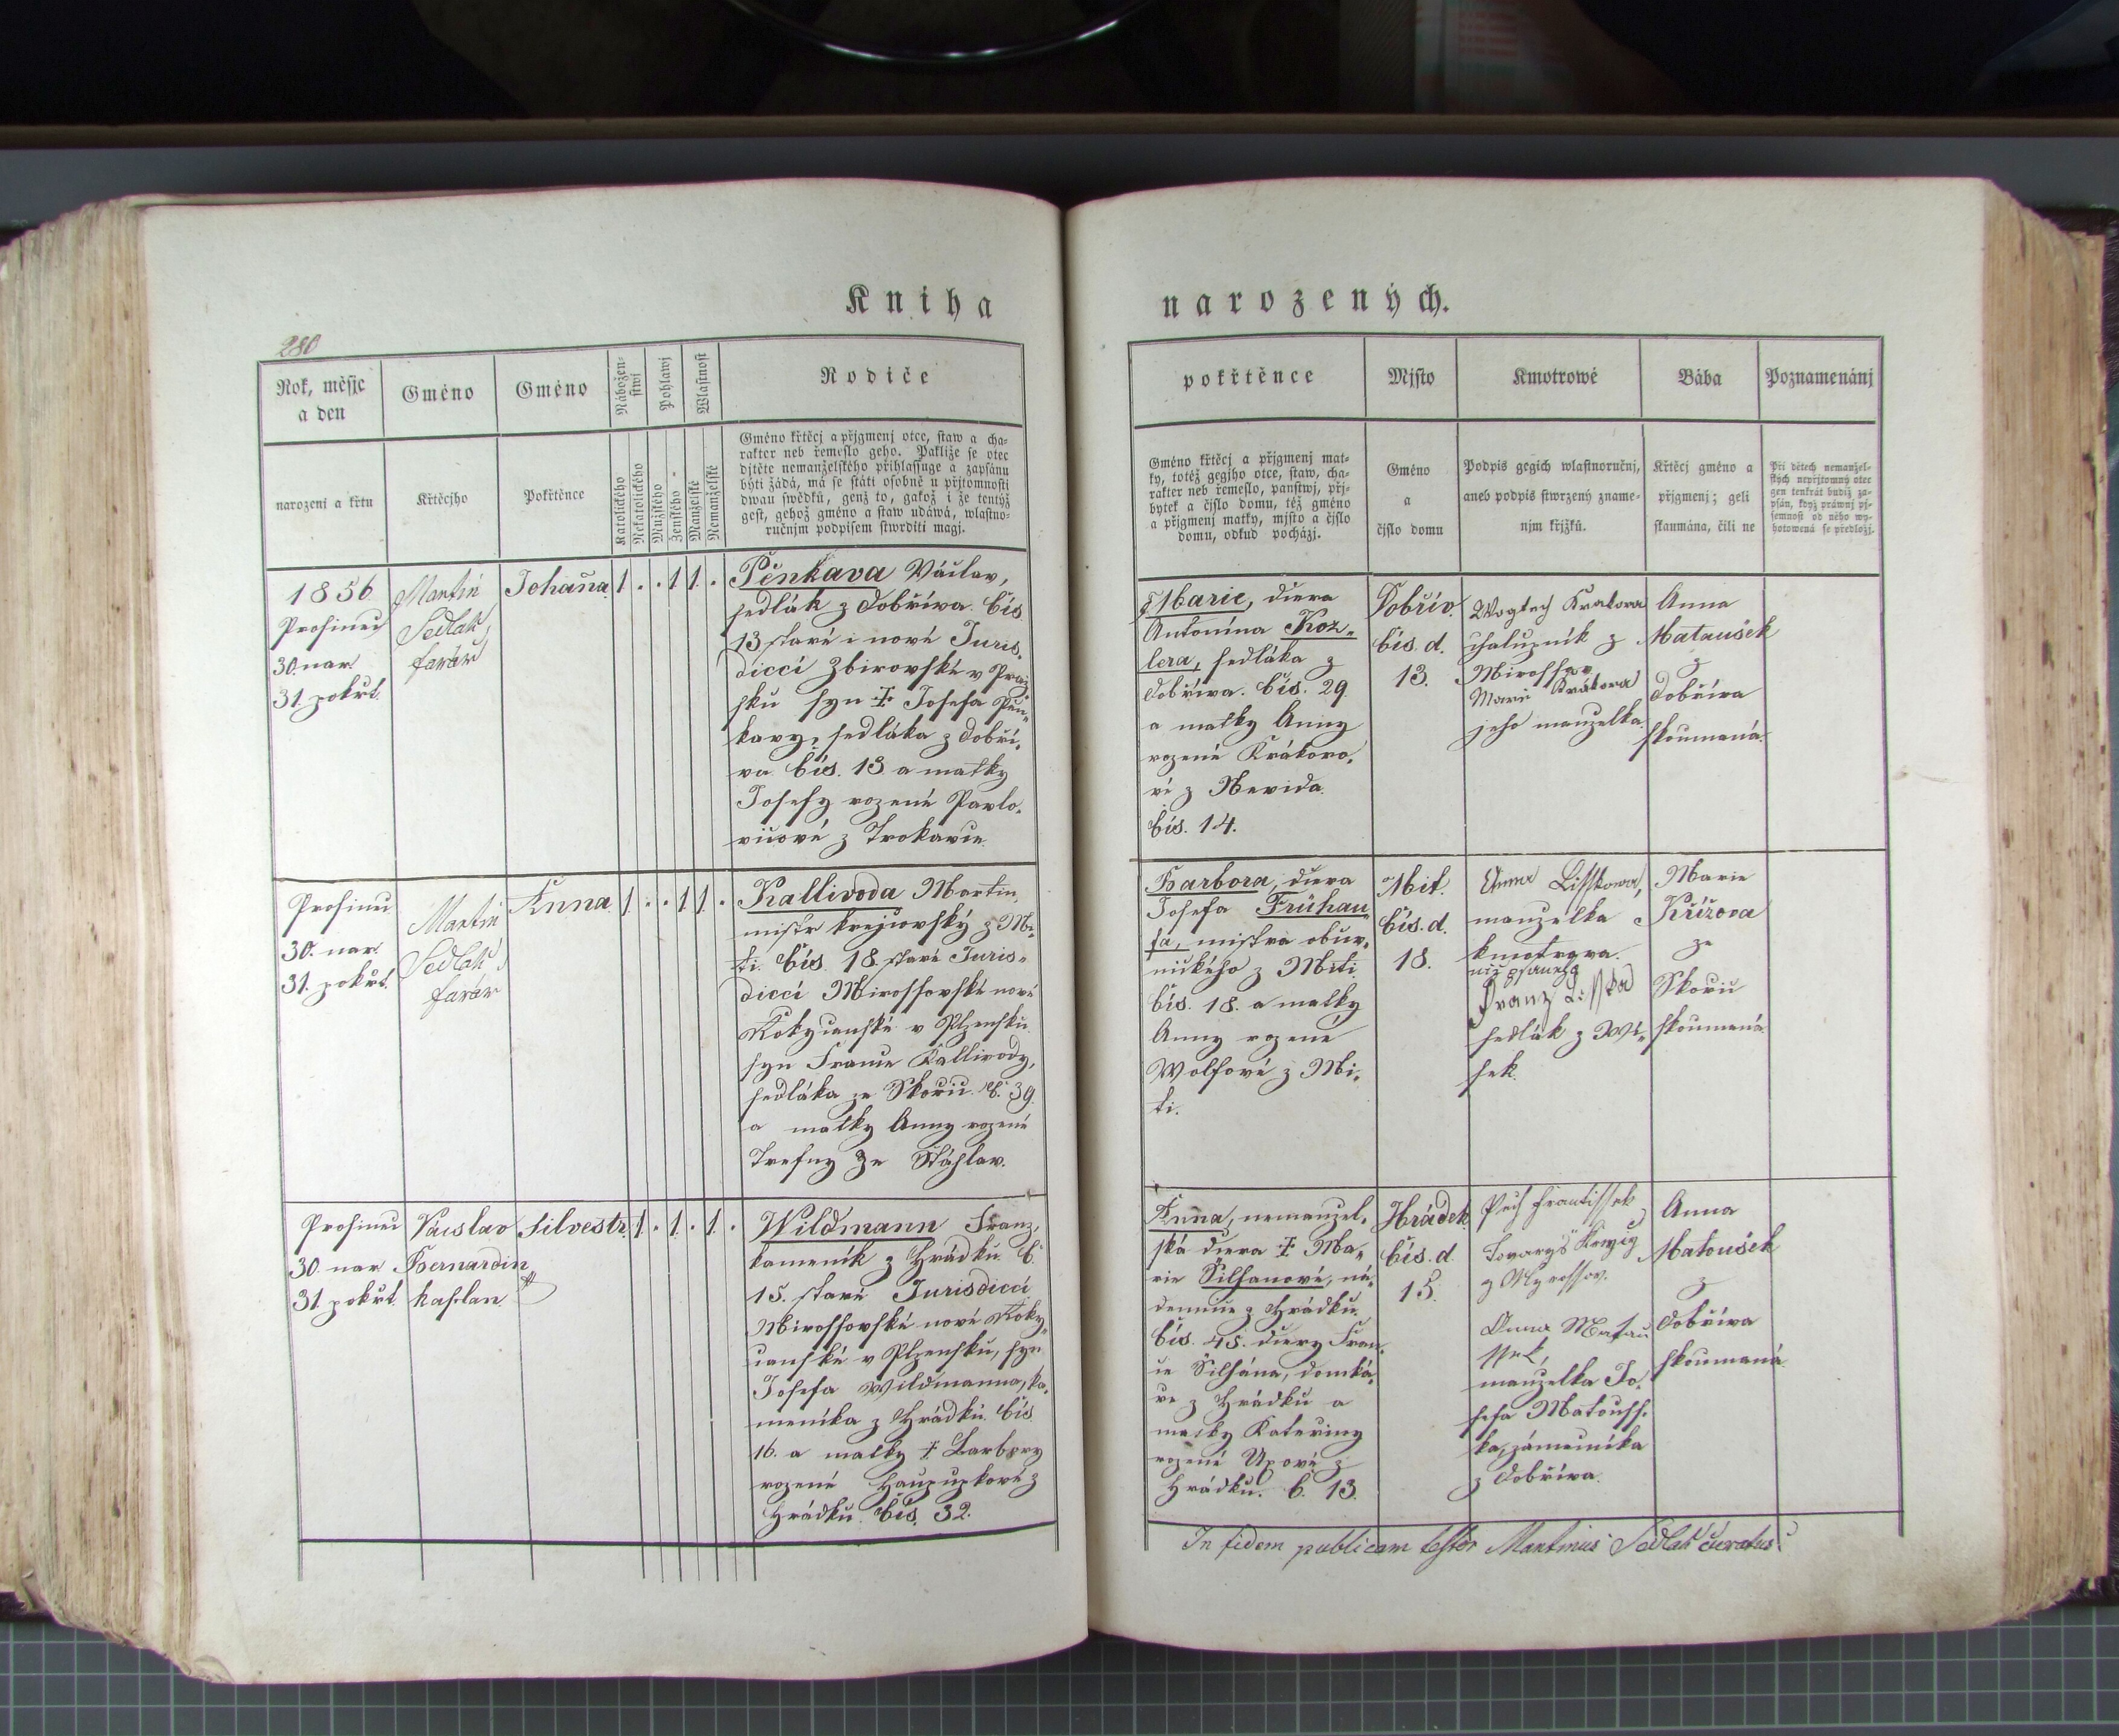 Kniha
narozených.
280
Rok, měsjc
a den
Gméno
Gméno
Nábožen-
stwi
Pohlawj
Wlastnost
Rodiče
narozeni a křtu
Křtěcjho
Pokřtěnce
Katolického
Nekatolického
Mužského
Ženského
Manželské
Nemanželské
Gméno křtěcj a přjgmenj otce, staw a cha-
rakter neb řemeslo geho. Pakliže se otec
djtěte nemanželského přihlassuge a zapsánu
býti žádá, má se státi osobně u přjtomnosti
dwau swědků, genž to, gakož i že tentýž
gest, gehož gméno a staw udáwá, wlastno-
ručnjm podpisem stwrditi magj.
1856
Prosinec
30. nar.
31. pokřt.
Martin
Sedlak
farář
Johana
1 . . 1 1 .
Pěnkava Václav,
sedlák z Dobříva. čís
13 staré i nové Juris-
dicci Zbirovské v Praž-
sku syn ‡ Josefa Pěn-
kavy, sedláka z Dobří-
va čís. 13 a matky
Josefy rozené Pavlo-
vicové z Trokavce.
Prosinec
30. nar.
31. pokřt.
Martin
Sedlak
farář
Anna
1 . . 1 1 .
Kallivoda Martin,
mistr krejčovský z Mi-
ti. čís. 18. staré Juris-
dicci Mirossovské nové
Rokycanské v Plzensku
syn France Kallivody,
sedláka ze Skořic č. 39.
a matky Anny rozené
Trefny ze Stáhlav.
Prosinec
30. nar.
31. pokřt.
Václav
Bernardin
kaplan
Silvestr
1 . 1 . 1 .
Wildmann Franz,
kameník z Hrádku č.
15. staré Jurisdicci
Mirossovské nové Roky-
canské v Plzensku, syn
Josefa Wildmanna, ka-
meníka z Hrádku čís
16. a matky ‡ Barbory
rozené z
Hrádku čís. 32.
pokřtěnce
Mjsto
Kmotrowé
Bába
Poznamenánj
Gméno křtěcj a přjgmenj mat-
ky, totéž gegjho otce, staw, cha-
rakter neb řemeslo, panstwj, přj-
bytek a čjslo domu, též gméno
a přjgmenj matky, mjsto a čjslo
domu, odkud pocházj.
Gméno
a
čjslo domu
Podpis gegich wlastnoručnj,
aneb podpis stwrzený zname-
njm křjžků.
Křtěcj gméno a
přjgmenj; geli
skaumána, čili ne
Při dětech nemanžel-
ských nepřjtomný otec
gen tenkrát budiž za-
psán, když práwnj pj-
semnost od něho wy-
hotowená se předložj.
Marie, dcera
Antonína Koz-
lera, sedláka z
Dobříva. čís. 29.
a matky Anny
rozené Krákoro-
vé z Nevida.
čís. 14.
Dobřív.
čís. d.
13.
Wogtech Krakora
chalupník z
Mirossova
Marie Krákora
jeho manželka.
Anna
Mataušek
z
Dobříva
skoumaná.
Barbora, dcera
Josefa Frühau-
fa, mistra obuv-
nického z Miti.
čís. 18. a matky
Anny rozené
Wolfové z Mi-
ti.
Mit.
čís. d.
18.
Anna Lisskowa,
manželka
kmotrova.
níž psaného
Franz Lisska
sedlák z Wi-
sek.
Marie
Křížova
ze
Skořic
skoumená
Anna, nemanžel-
ská dcera ‡ Ma-
rie Silhanové, ná-
dennice z Hrádku.
čís. 45. dcery Fran-
ce Silhána, domká-
ře z Hrádku a
matky Kateřiny
rozené z
Hrádku. č. 13.
Hrádek
čís. d.
15.
Pech Frantissek
Tovaryš
z Myrossov.
Anna Matau
ssek,
manželka Jo-
sefa Matouss-
ka, zámečníka
z Dobříva.
Anna
Matoušek
z
Dobříva
skoumaná
In fidem publicam testor Martinus Sedlak curatus